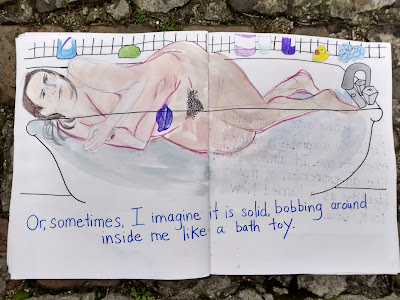 Or, sometimes, I imagine it is solid, bobbing around
inside me like a bath toy.